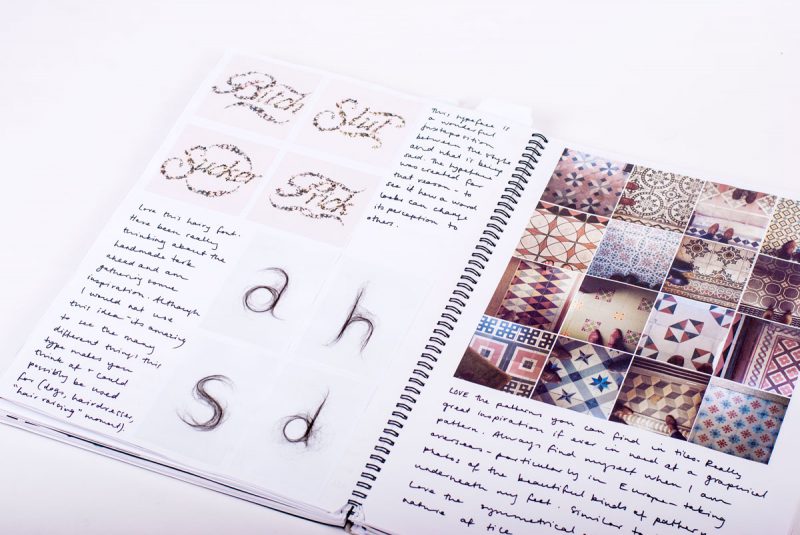 Bitch
Slut
Sucker
Prick
This typeface is
a wonderful
juxtaposition
between the style
and what is being
said. The typeface
was created for
that reason - to
see if how a word
looks can change
its perception to
others.
Love this hairy font.
Have been really
thinking about the
handmade task
ahead and am
gathering some
inspiration. Although
I would not use
this idea - its amazing
to see the many
different things this
type makes you
think of + could
possibly be used
for (dogs, hairdresser,
"hair raising" moment)
a
h
s
d
LOVE the patterns you can find in tiles. Really
great inspiration if ever in need of a graphical
pattern. Always find myself when I am
overseas - particularly in Europe - taking
photos of the beautiful kinds of pattern
underneath my feet. Similar to
Love the symmetrical
nature of tile